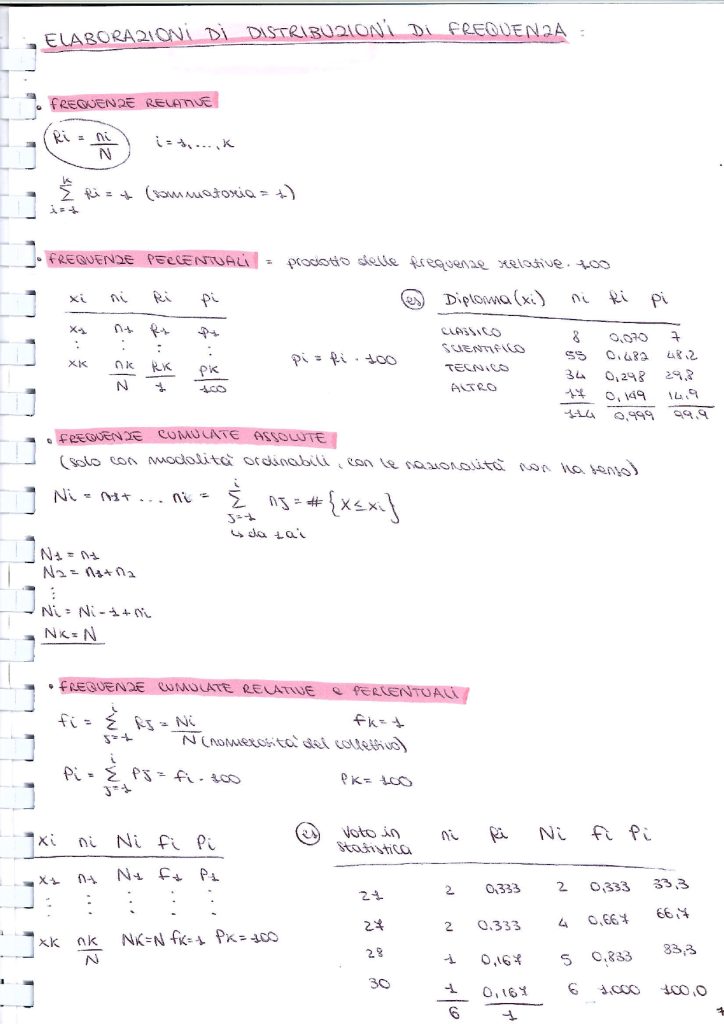 ELABORAZIONI DI DISTRIBUZIONI DI FREQUENZA :
• FREQUENZE RELATIVE
fi = ni/N i = 1,...,K
k Σ i=1 fi = 1 (sommatoria = 1)
• FREQUENZE PERCENTUALI = prodotto delle frequenze relative · 100
xi ni fi pi
x1 n1 f1 p1
⋮ ⋮ ⋮ ⋮
xK nK fK pK
N 1 100
pi = fi · 100
es Diploma (xi) ni fi pi
CLASSICO 8 0,070 7
SCIENTIFICO 55 0,482 48,2
TECNICO 34 0,298 29,8
ALTRO 17 0,149 14,9
114 0,999 99,9
• FREQUENZE CUMULATE ASSOLUTE
(solo con modalità ordinabili, con le nazionalità non ha senso)
Ni = n1 + ... ni = i Σ j=1 nj = # {X ≤ xi}
↳ da 1 a i
N1 = n1
N2 = n1 + n2
⋮
Ni = Ni-1 + ni
NK = N
• FREQUENZE CUMULATE RELATIVE e PERCENTUALI
Fi = i Σ j=1 fj = Ni/N (numerosità del collettivo) FK = 1
Pi = i Σ j=1 Pj = Fi · 100 PK = 100
xi ni Ni Fi Pi
x1 n1 N1 F1 P1
⋮ ⋮ ⋮ ⋮ ⋮
xK nK NK=N FK=1 PK=100
N
es Voto in statistica ni fi Ni Fi Pi
21 2 0,333 2 0,333 33,3
27 2 0.333 4 0,667 66,7
28 1 0,167 5 0,833 83,3
30 1 0,167 6 1,000 100,0
6 1